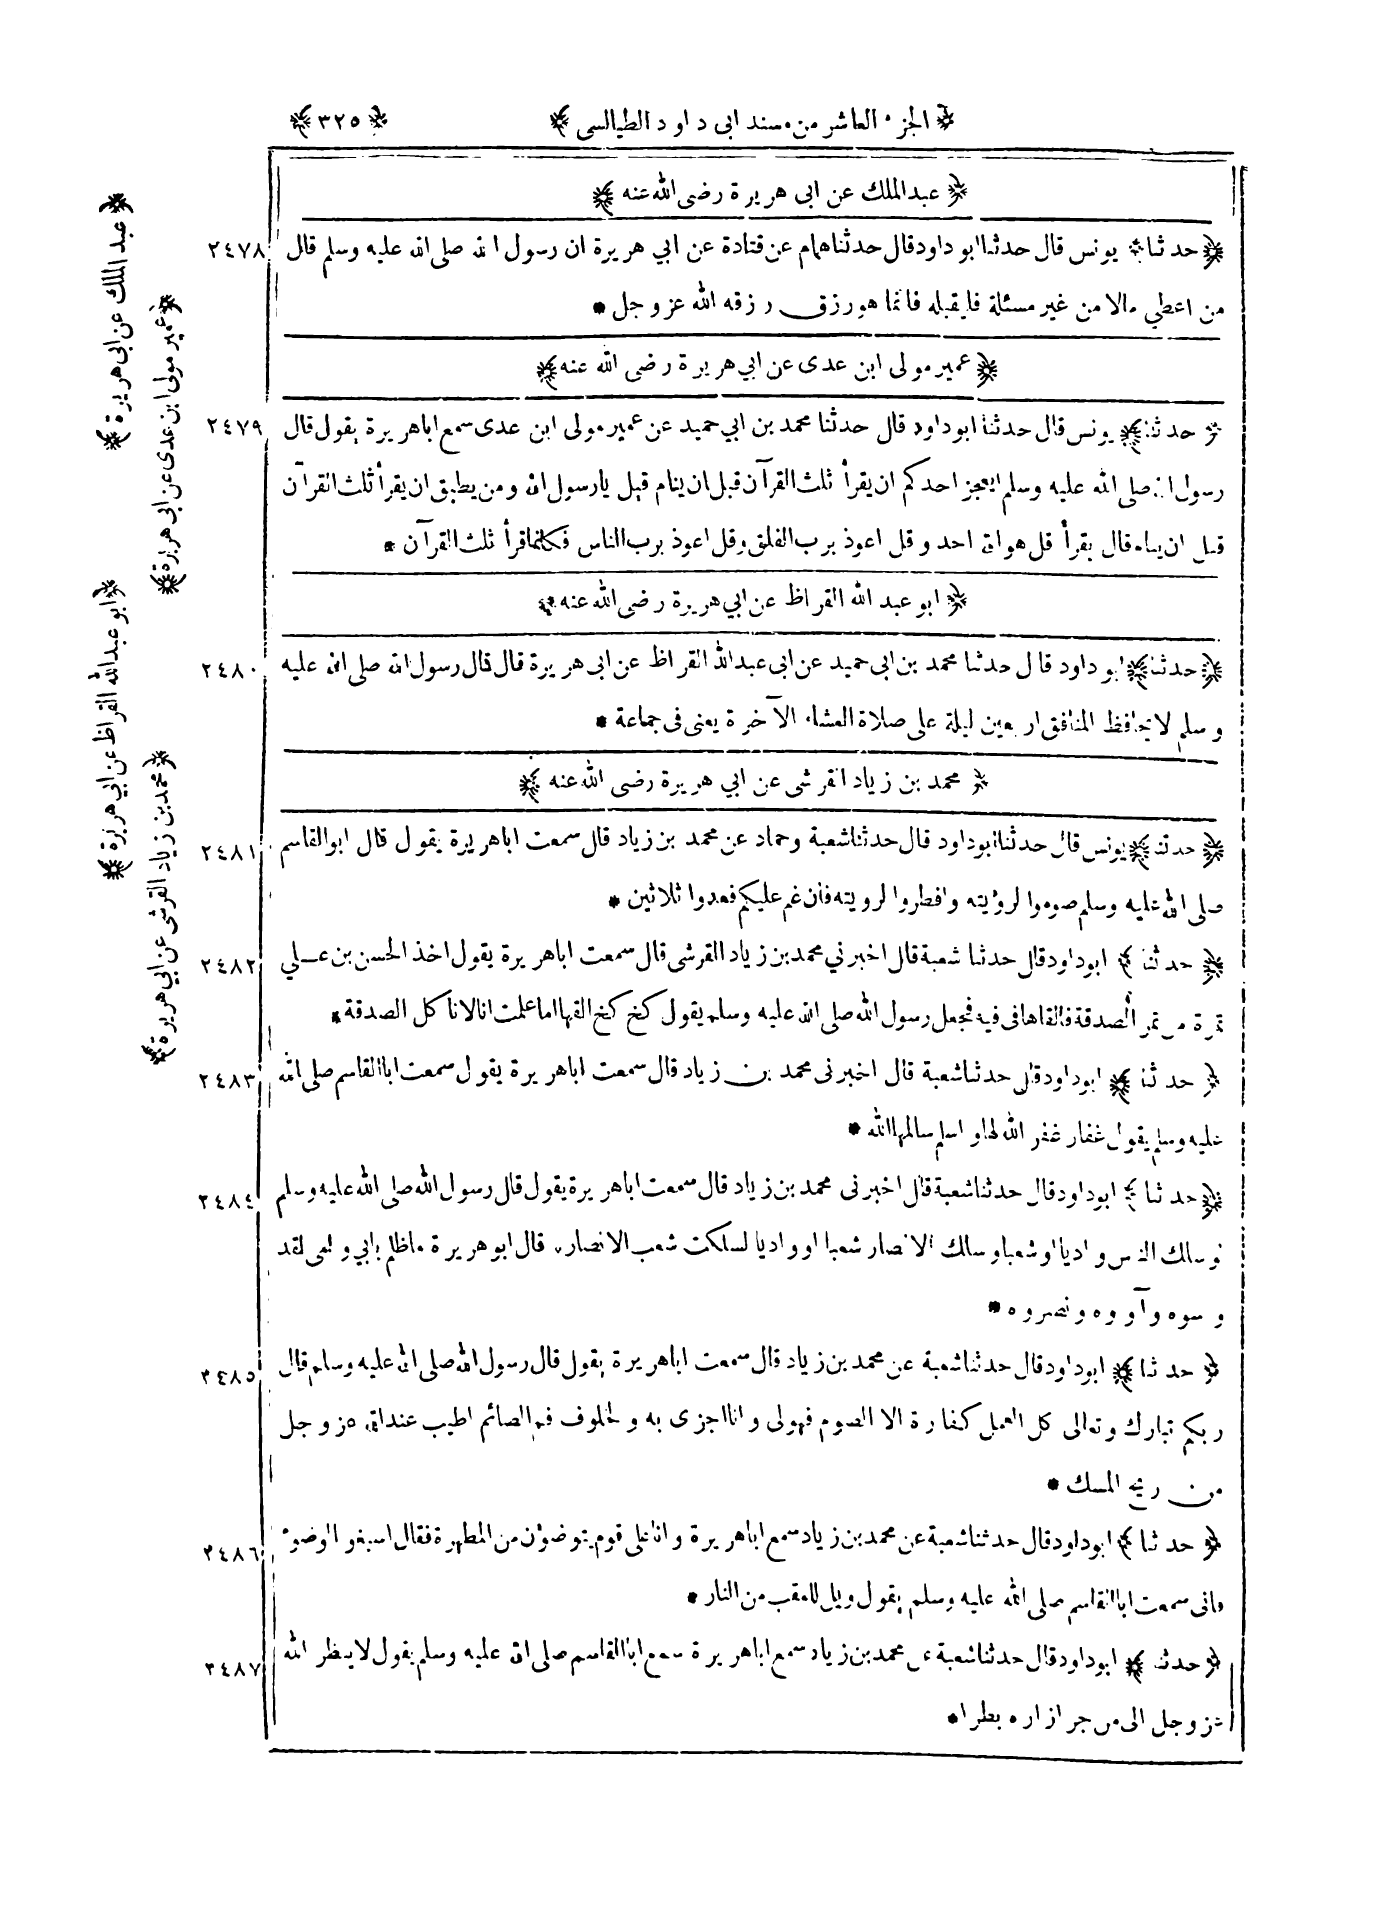 ﴿ الجزء العاشر من مسند ابى داود الطيالسى ﴾ ﴿ ٣٢٥ ﴾
﴿ عبد الملك عن ابى هريرة رضى الله عنه ﴾
﴿ حدثنا ﴾ يونس قال حدثنا ابو داود قال حدثنا همام عن قتادة عن ابي هريرة ان رسول الله صلى الله عليه وسلم قال ٢٤٧٨
من اعطي مالا من غير مسئلة فليقبله فانما هو رزق رزقه الله عز وجل *
﴿ عمير مولى ابن عدى عن ابي هريرة رضى الله عنه ﴾
﴿ حدثنا ﴾ يونس قال حدثنا ابو داود قال حدثنا محمد بن ابي حميد عن عمير مولى ابن عدى سمع ابا هريرة يقول قال ٢٤٧٩
رسول الله صلى الله عليه وسلم ايعجز احدكم ان يقرأ ثلث القرآن قبل ان ينام قيل يا رسول الله ومن يطيق ان يقرأ ثلث القرآن
قبل ان ينام قال يقرأ قل هو الله احد وقل اعوذ برب الفلق وقل اعوذ برب الناس فكانما قرأ ثلث القرآن *
﴿ ابو عبد الله القراظ عن ابي هريرة رضى الله عنه ﴾
﴿ حدثنا ﴾ ابو داود قال حدثنا محمد بن ابى حميد عن ابى عبد الله القراظ عن ابى هريرة قال قال رسول الله صلى الله عليه ٢٤٨٠
وسلم لا يحافظ المنافق اربعين ليلة على صلاة العشاء الآخرة يعنى فى جماعة *
﴿ محمد بن زياد القرشى عن ابي هريرة رضى الله عنه ﴾
﴿ حدثنا ﴾ يونس قال حدثنا ابو داود قال حدثنا شعبة وحماد عن محمد بن زياد قال سمعت ابا هريرة يقول قال ابو القاسم ٢٤٨١
صلى الله عليه وسلم صوموا لرؤيته وافطروا لرويته فان غم عليكم فعدوا ثلاثين *
﴿ حدثنا ﴾ ابو داود قال حدثنا شعبة قال اخبرني محمد بن زياد القرشى قال سمعت ابا هريرة يقول اخذ الحسن بن علي ٢٤٨٢
تمرة من تمر الصدقة فالقاها فى فيه فجعل رسول الله صلى الله عليه وسلم يقول كخ كخ القها اما علمت انا لا نأكل الصدقة *
﴿ حدثنا ﴾ ابو داود قال حدثنا شعبة قال اخبرنى محمد بن زياد قال سمعت ابا هريرة يقول سمعت ابا القاسم صلى الله ٢٤٨٣
عليه وسلم يقول غفار غفر الله لها و اسلم سالمها الله *
﴿ حدثنا ﴾ ابو داود قال حدثنا شعبة قال اخبرنى محمد بن زياد قال سمعت ابا هريرة يقول قال رسول الله صلى الله عليه وسلم ٢٤٨٤
لو سلك الناس واديا او شعبا وسلك الانصار شعبا او واديا لسلكت شعب الانصار، قال ابو هريرة ماظلم بابي وامى لقد
و سوه وآووه ونصروه *
﴿ حدثنا ﴾ ابو داود قال حدثنا شعبة عن محمد بن زياد قال سمعت ابا هريرة يقول قال رسول الله صلى الله عليه وسلم قال ٢٤٨٥
ربكم تبارك وتعالى كل العمل كفارة الا الصوم فهو لى وانا اجزى به ولخلوف فم الصائم اطيب عند الله عز وجل
من ريح المسك *
﴿ حدثنا ﴾ ابو داود قال حدثنا شعبة عن محمد بن زياد سمع ابا هريرة واتا على قوم يتوضؤن من المطهرة فقال اسبغوا الوضوء ٢٤٨٦
فانى سمعت ابا القاسم صلى الله عليه وسلم يقول ويل للعقب من النار *
﴿ حدثنا ﴾ ابو داود قال حدثنا شعبة عن محمد بن زياد سمع ابا هريرة سمع ابا القاسم صلى الله عليه وسلم يقول لا ينظر الله ٢٤٨٧
عز وجل الى من جر ازاره بطرا *
﴿ عبد الملك عن ابى هريرة ﴾
﴿ عمير مولى ابن عدى عن ابى هريرة ﴾
﴿ ابو عبد الله القراظ عن ابي هريرة ﴾
﴿ محمد بن زياد القرشى عن ابي هريرة ﴾